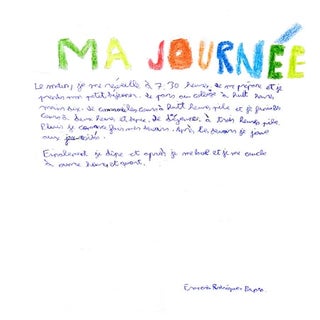 MA JOURNÉE
Le matin, je me réveille à 7:30 heures, je me prépare et je
prends mon petit déjeuner. Je pars au collège à huit heures
moins dix. Je commence les cours à huit heures pile et je finis les
cours à deux heures et demie. Je déjeune à trois heures pile.
Plus je commence faire mes devoirs. Après les devoirs je joue
aux
Finalement je dîne et après je me et je me couche
à onze heures et quart.